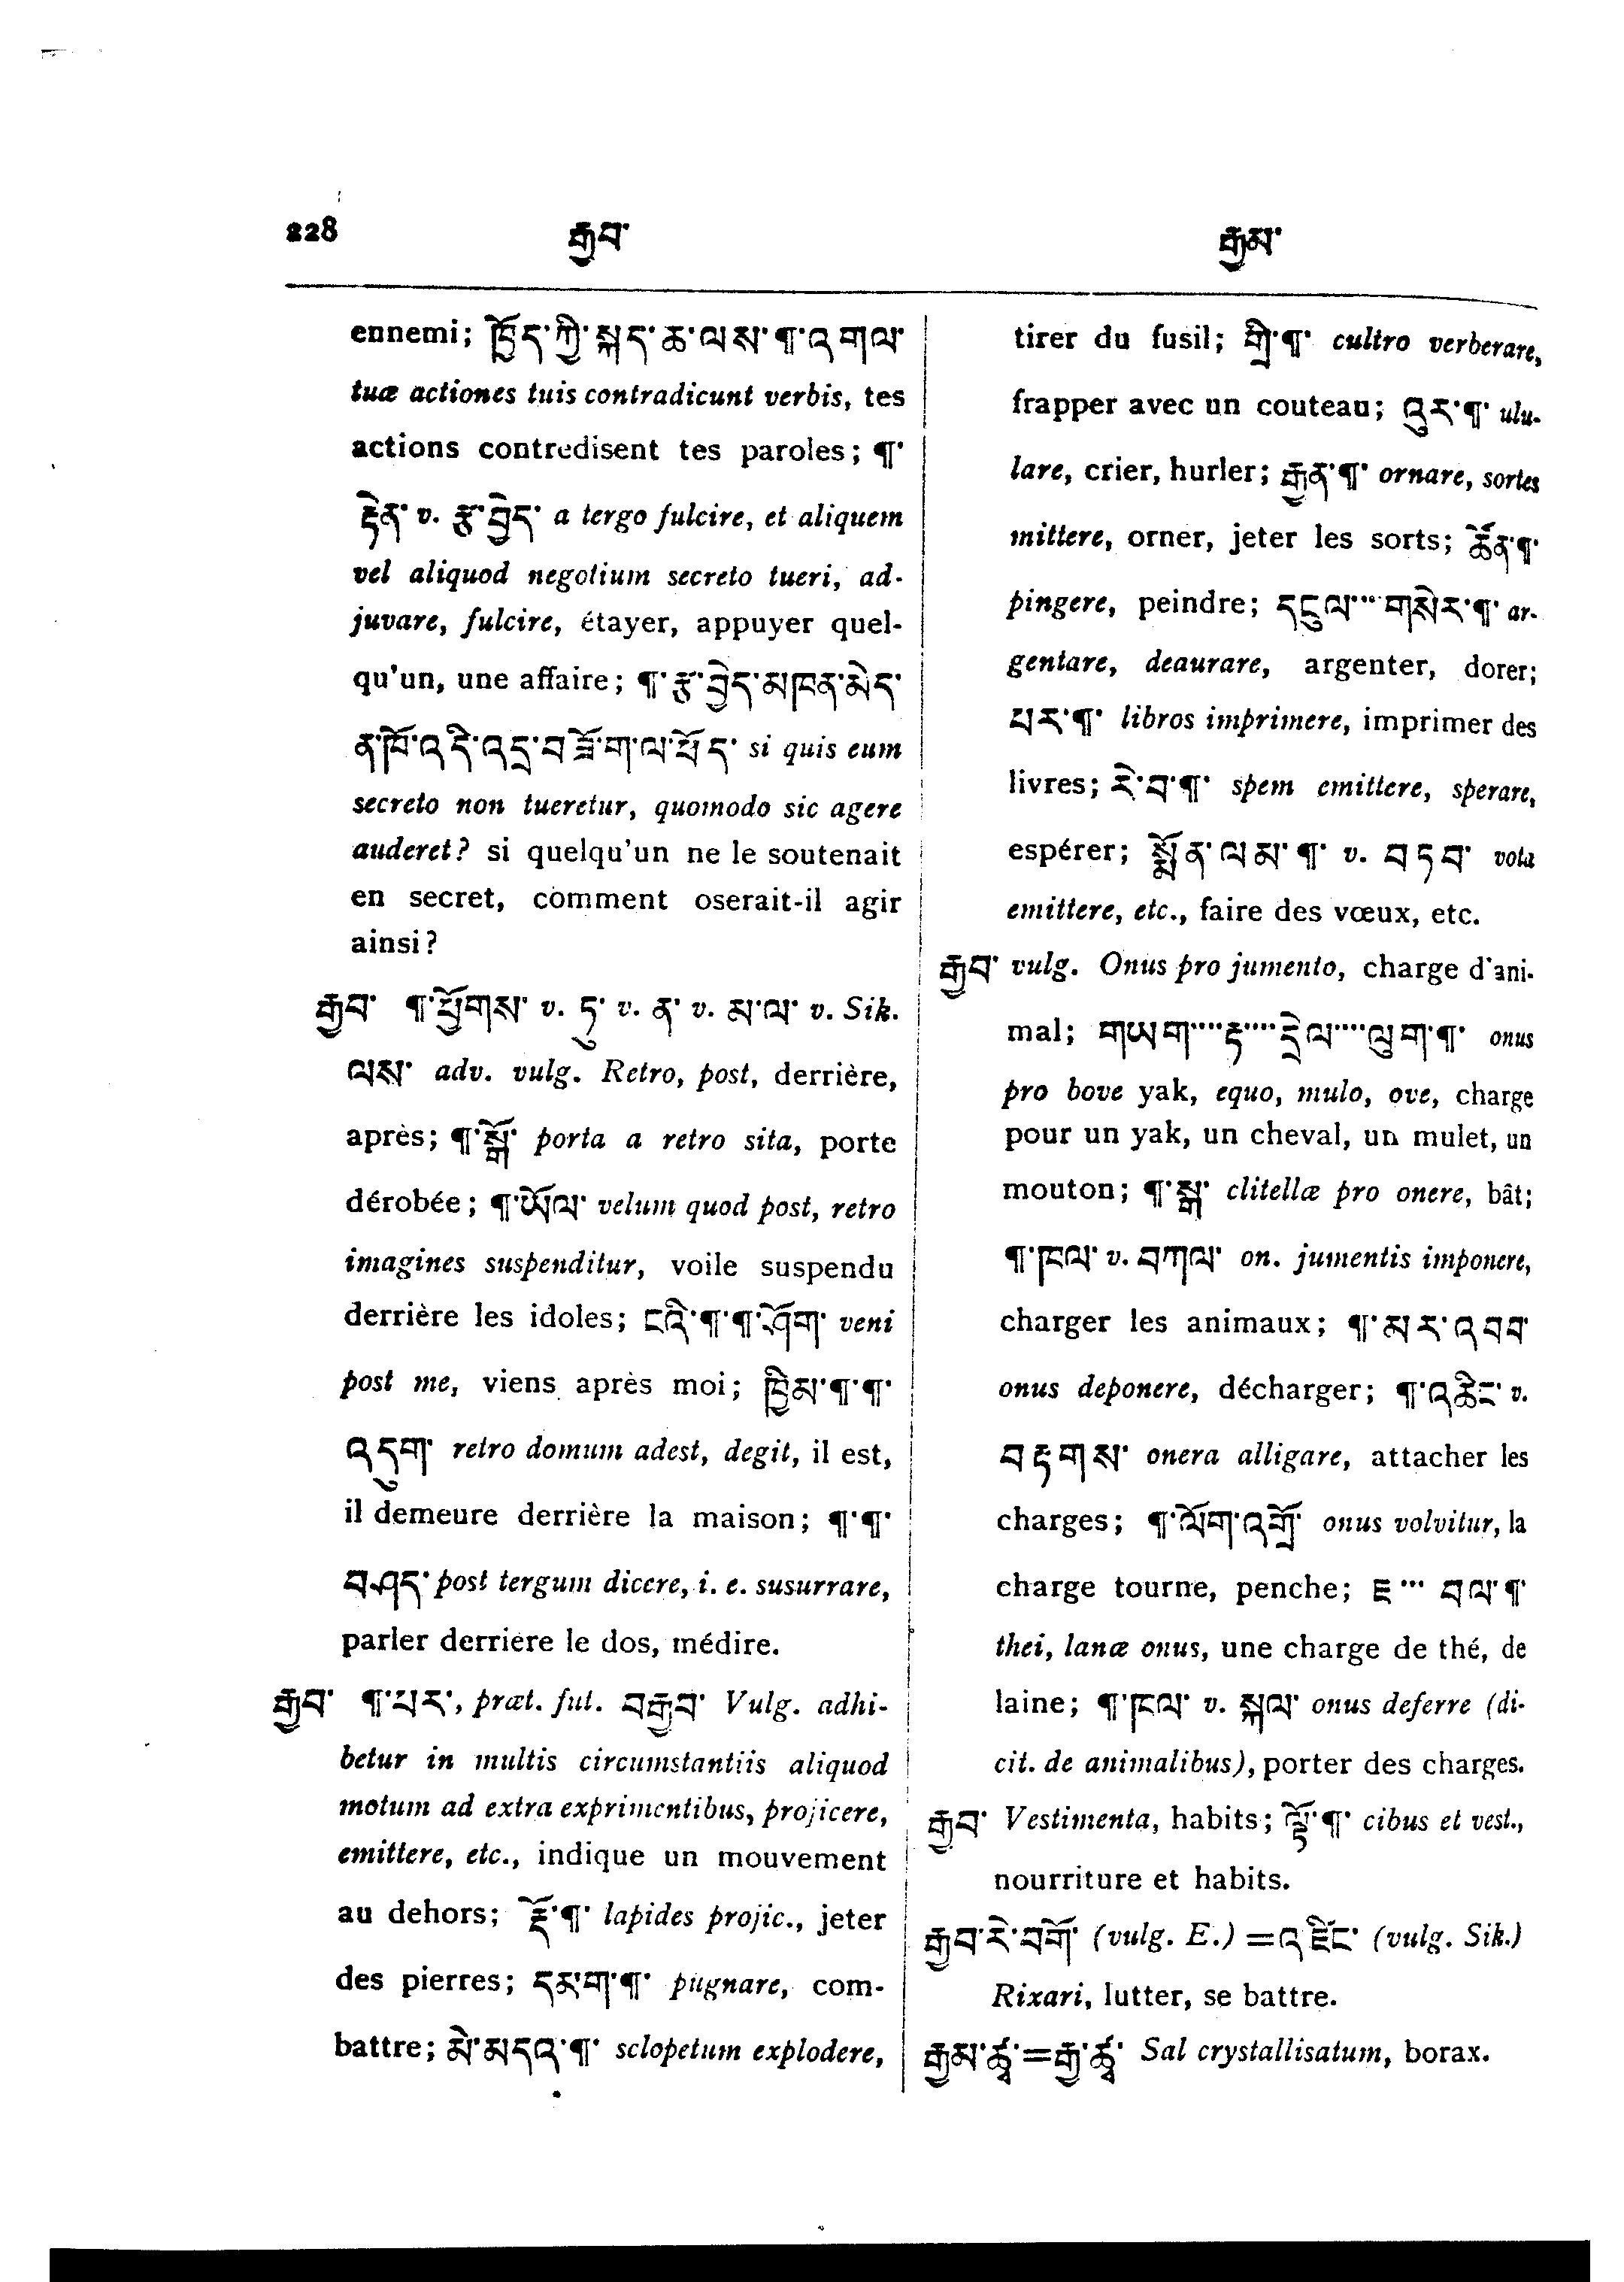 228 རྒྱབ་ རྒྱམ་
ennemi; ཁྱོད་ཀྱི་སྐད་ཆ་ལས་¶་འགལ་
tuæ actiones tuis contradicunt verbis, tes
actions contredisent tes paroles; ¶་
རྟེན་ v. རྩ་བྱེད་ a tergo fulcire, et aliquem
vel aliquod negotium secreto tueri, ad-
juvare, fulcire, étayer, appuyer quel-
qu'un, une affaire; ¶་རྩ་བྱེད་མཁན་མེད་
ན་ཁོ་འདི་འདྲ་བཟོ་ག་ལ་ཕོད་ si quis eum
secreto non tueretur, quomodo sic agere
auderet? si quelqu'un ne le soutenait
en secret, comment oserait-il agir
ainsi?
རྒྱབ་ ¶་ཕྱོགས་ v. ཏུ་ v. ན་ v. མ་ལ་ v. Sik.
ལས་ adv. vulg. Retro, post, derrière,
après; ¶་སྒོ་ porta a retro sita, porte
dérobée; ¶་ཡོལ་ velum quod post, retro
imagines suspenditur, voile suspendu
derrière les idoles; ངའི་¶་¶་ཤོག་ veni
post me, viens après moi; ཁྱིམ་¶་¶་
འདུག་ retro domum adest, degit, il est,
il demeure derrière la maison; ¶་¶་
བཤད་ post tergum dicere, i. e. susurrare,
parler derrière le dos, médire.
རྒྱབ་ ¶་པར་, præt. fut. བརྒྱབ་ Vulg. adhi-
betur in multis circumstantiis aliquod
motum ad extra exprimentibus, projicere,
emittere, etc., indique un mouvement
au dehors; རྡོ་¶་ lapides projic., jeter
des pierres; དམག་¶་ pugnare, com-
battre; མེ་མདའ་¶་ sclopetum explodere,
tirer du fusil; གྲི་¶་ cultro verberare,
frapper avec un couteau; འུར་¶་ ulu-
lare, crier, hurler; རྒྱན་¶་ ornare, sortes
mittere, orner, jeter les sorts; ཚོན་¶་
pingere, peindre; དངུལ་···གསེར་¶་ ar-
gentare, deaurare, argenter, dorer;
པར་¶་ libros imprimere, imprimer des
livres; རེ་བ་¶་ spem emittere, sperare,
espérer; སྨོན་ལམ་¶་ v. བཏབ་ vota
emittere, etc., faire des vœux, etc.
རྒྱབ་ vulg. Onus pro jumento, charge d'ani-
mal; གཡག་···རྟ་···དྲེལ་···ལུག་¶་ onus
pro bove yak, equo, mulo, ove, charge
pour un yak, un cheval, un mulet, un
mouton; ¶་སྒ་ clitellæ pro onere, bât;
¶་ཁལ་ v. བཀལ་ on. jumentis imponere,
charger les animaux; ¶་མར་འབབ་
onus deponere, décharger; ¶་འཆིང་ v.
བརྟགས་ onera alligare, attacher les
charges; ¶་ལོག་འགྲོ་ onus volvitur, la
charge tourne, penche; ཇ་··· བལ་¶་
thei, lanæ onus, une charge de thé, de
laine; ¶་ཁལ་ v. སྐལ་ onus deferre (di-
cit. de animalibus), porter des charges.
རྒྱབ་ Vestimenta, habits; ལྟོ་¶་ cibus et vest.,
nourriture et habits.
རྒྱབ་རེ་བགོ་ (vulg. E.) = འཛིང་ (vulg. Sik.)
Rixari, lutter, se battre.
རྒྱམ་ཚྭ་=རྒྱ་ཚྭ་ Sal crystallisatum, borax.